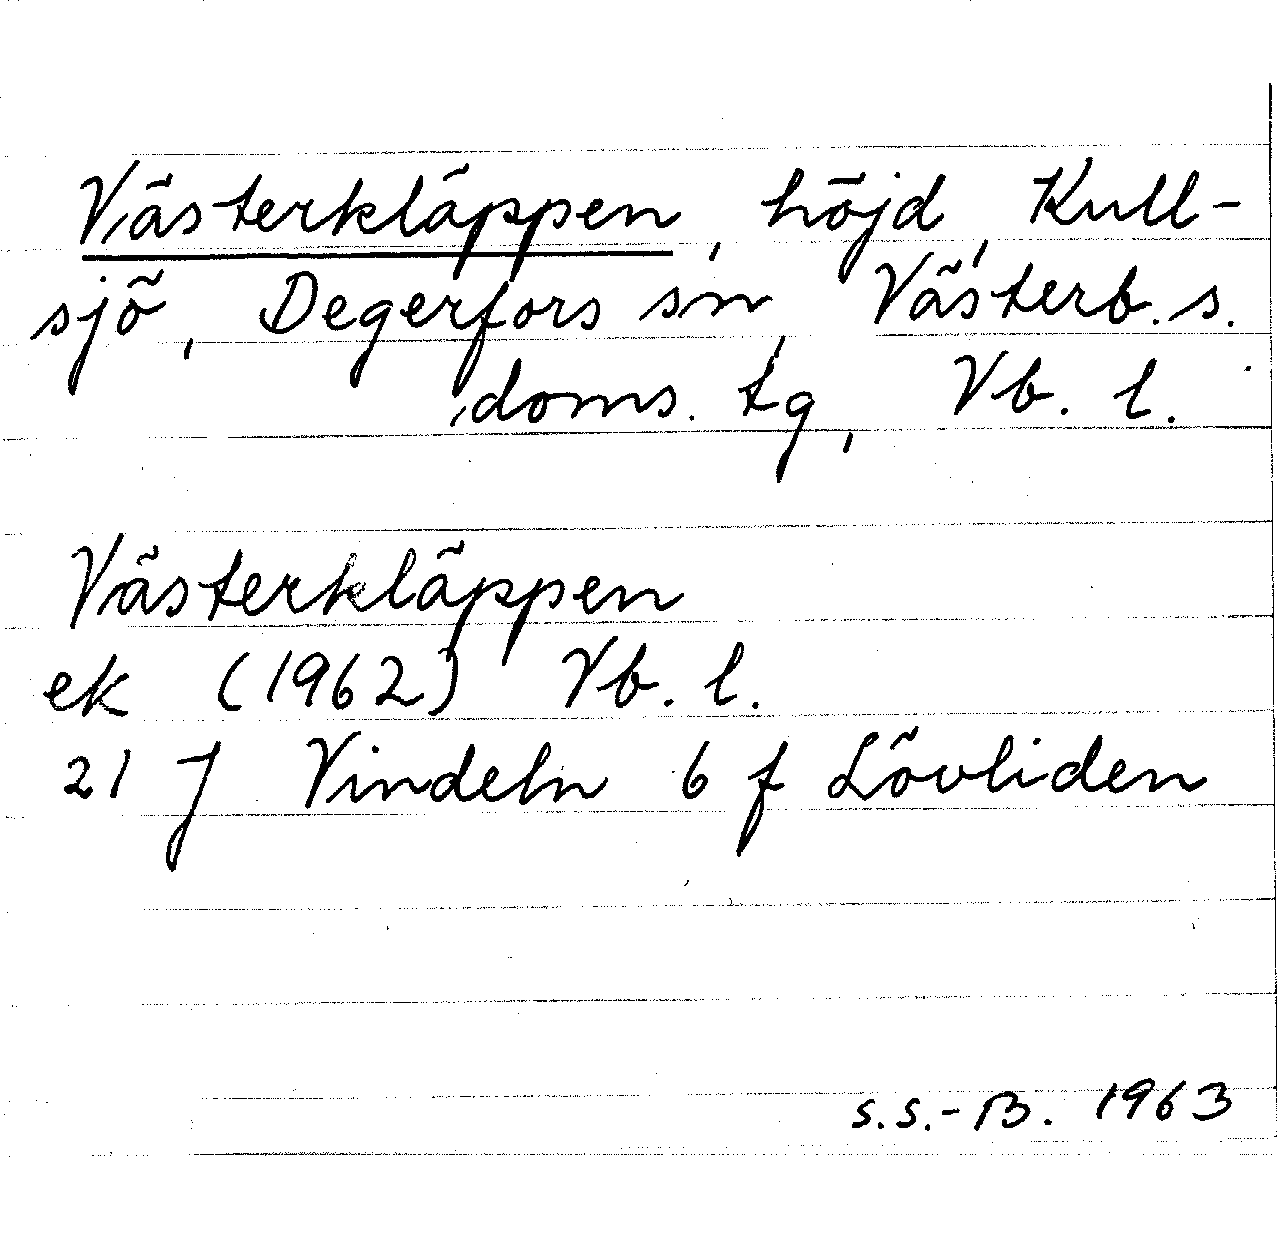 Västerkläppen, höjd, Kull-
sjö, Degerfors sn, Västerb. s.
doms. tg, Vb. l.
Västerkläppen
ek (1962) Vb. l.
21 J Vindeln 6 f Lövliden
S.S.-B. 1963